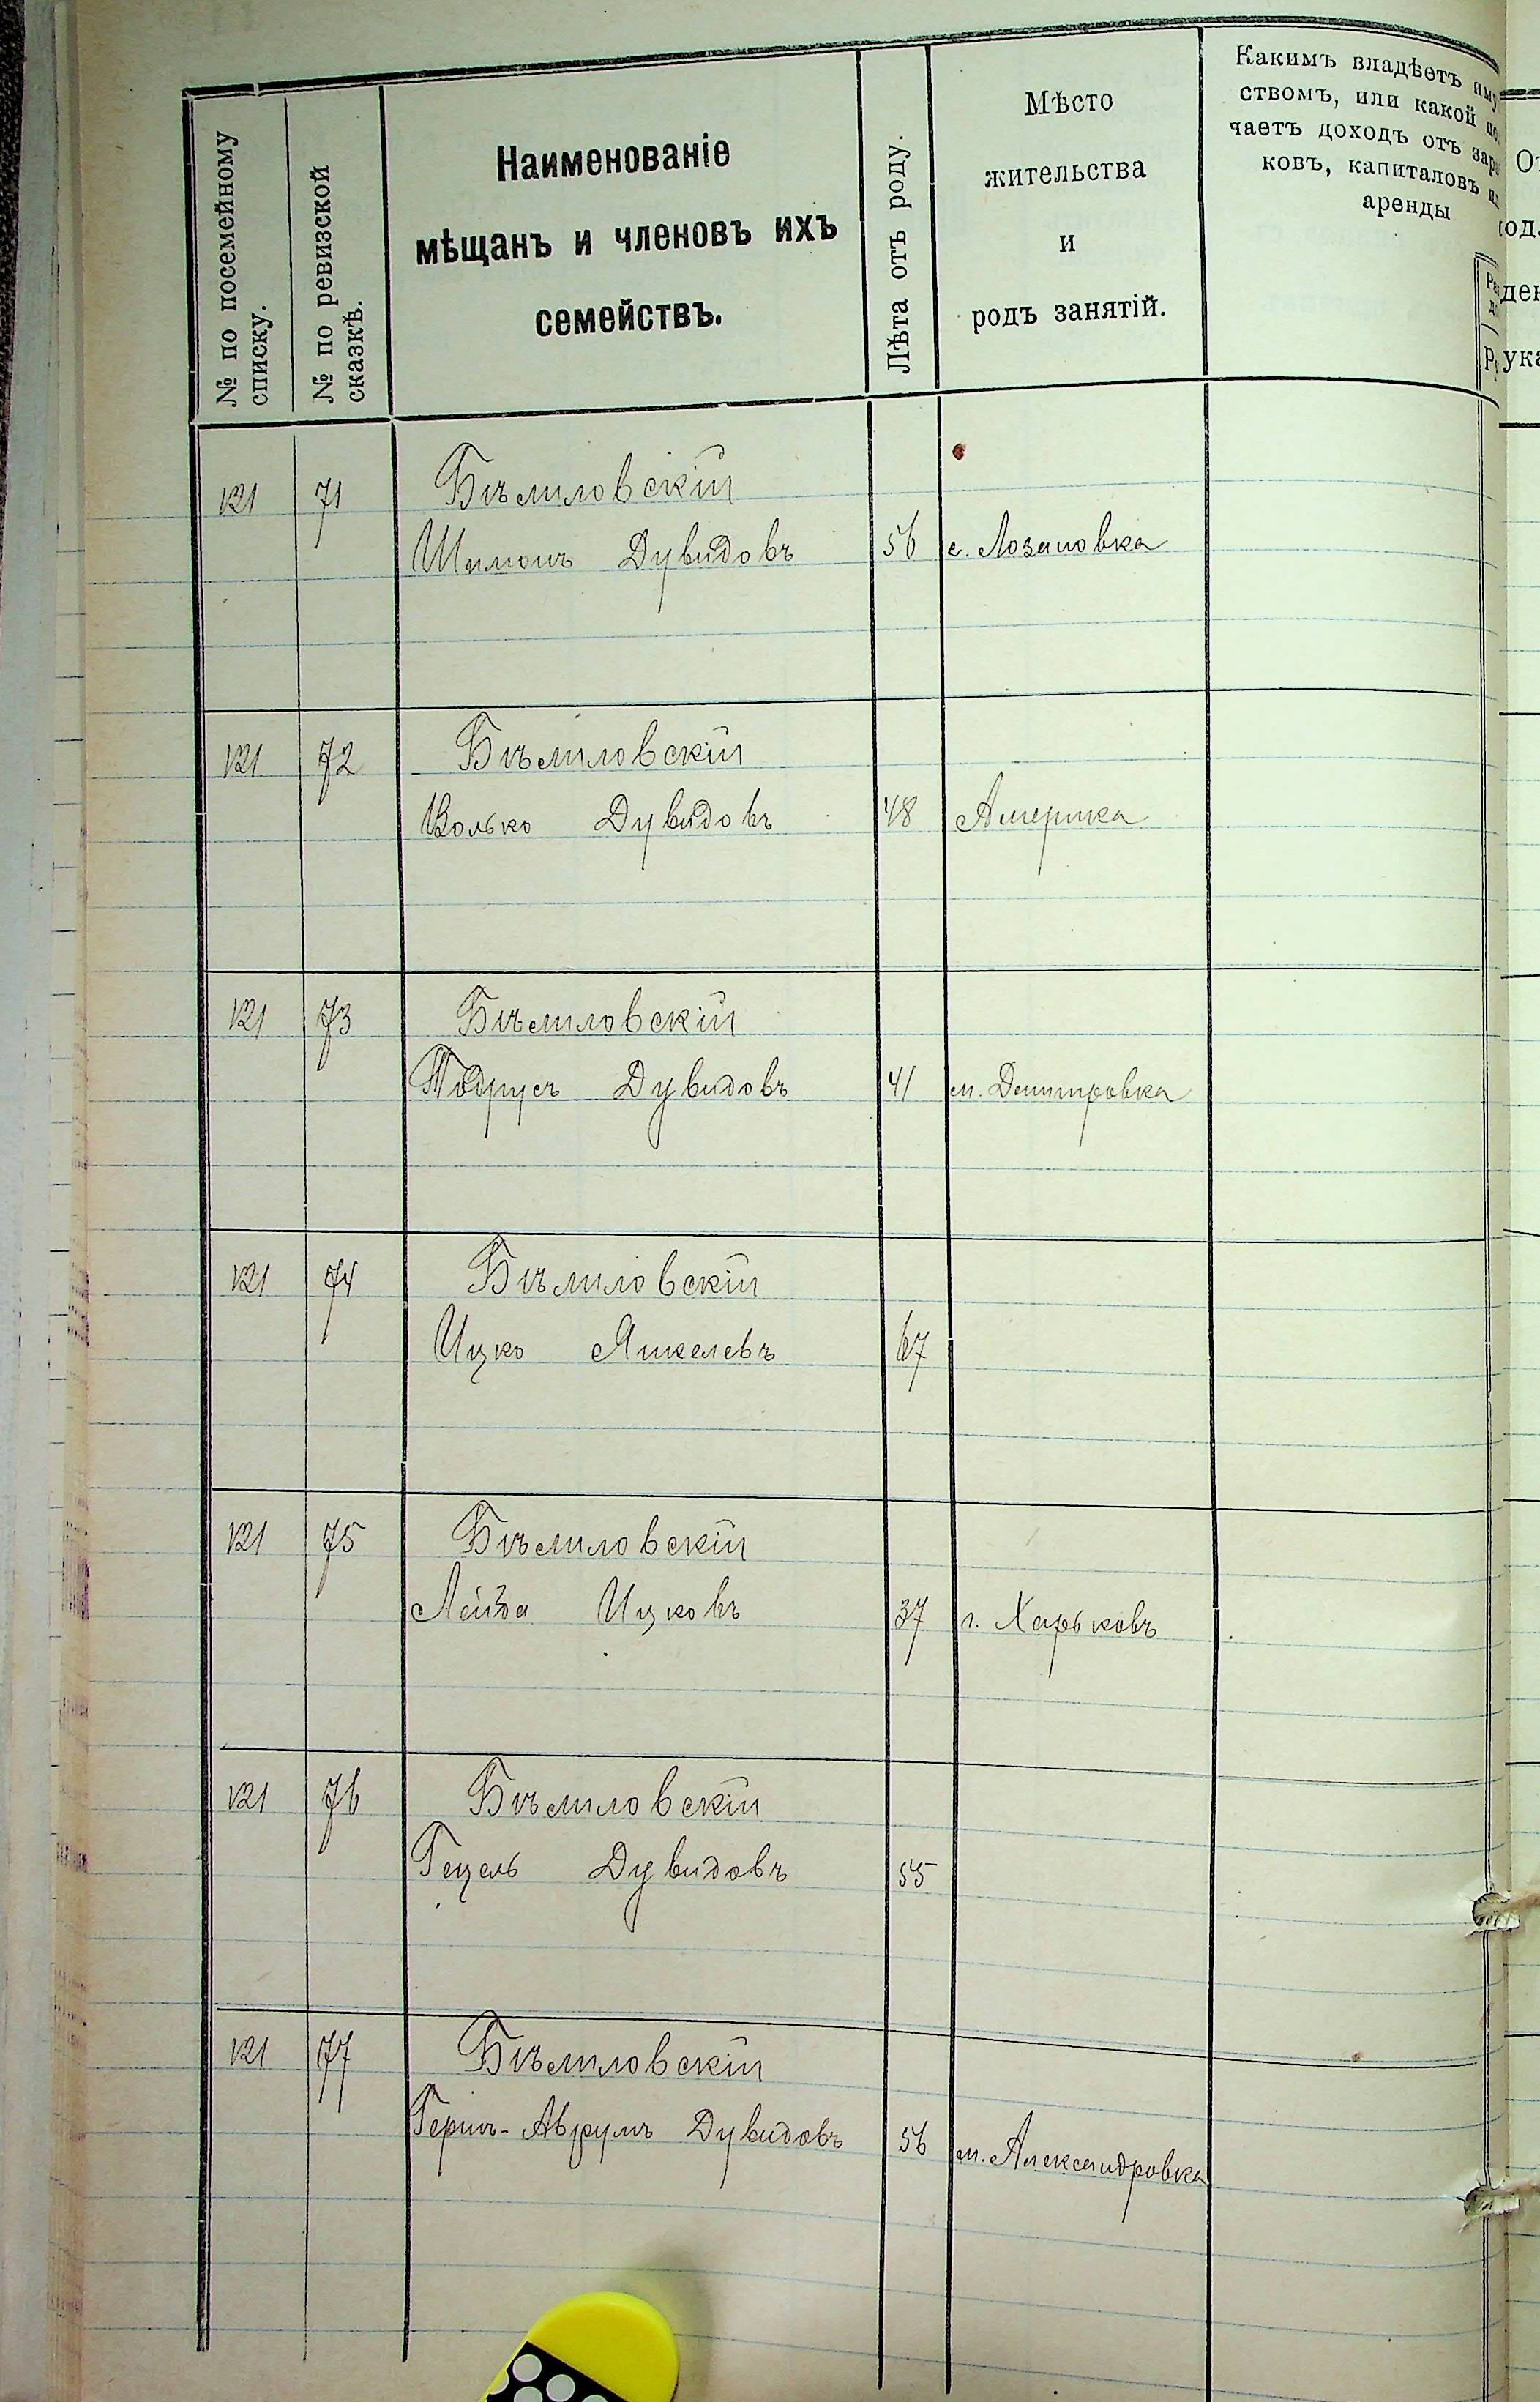 № по посемейному
списку.
№ по ревизской
сказкѣ.
Наименованіе
мѣщанъ и членовъ ихъ
семействъ.
Лѣта отъ роду.
Мѣсто
жительства
и
родъ занятій.
Какимъ владѣетъ
ствомъ, или какой
чаетъ доходъ отъ
ковъ, капиталовъ
аренды
121 71 Бѣлиловскій
Шимонъ Дувидовъ 56 с. Лозановка
121 72 Бѣлиловскій
Волько Дувидовъ 48 Америка
121 73 Бѣлиловскій
Тодрусъ Дувидовъ 41 м. Дмитровка
121 74 Бѣлиловскій
Ицко Янкелевъ 67
121 75 Бѣлиловскій
Лейба Ицковъ 37 г. Харьковъ
121 76 Бѣлиловскій
Гецель Дувидовъ 55
121 77 Бѣлиловскій
Герш-Аврумъ Дувидовъ 56 м. Александровка